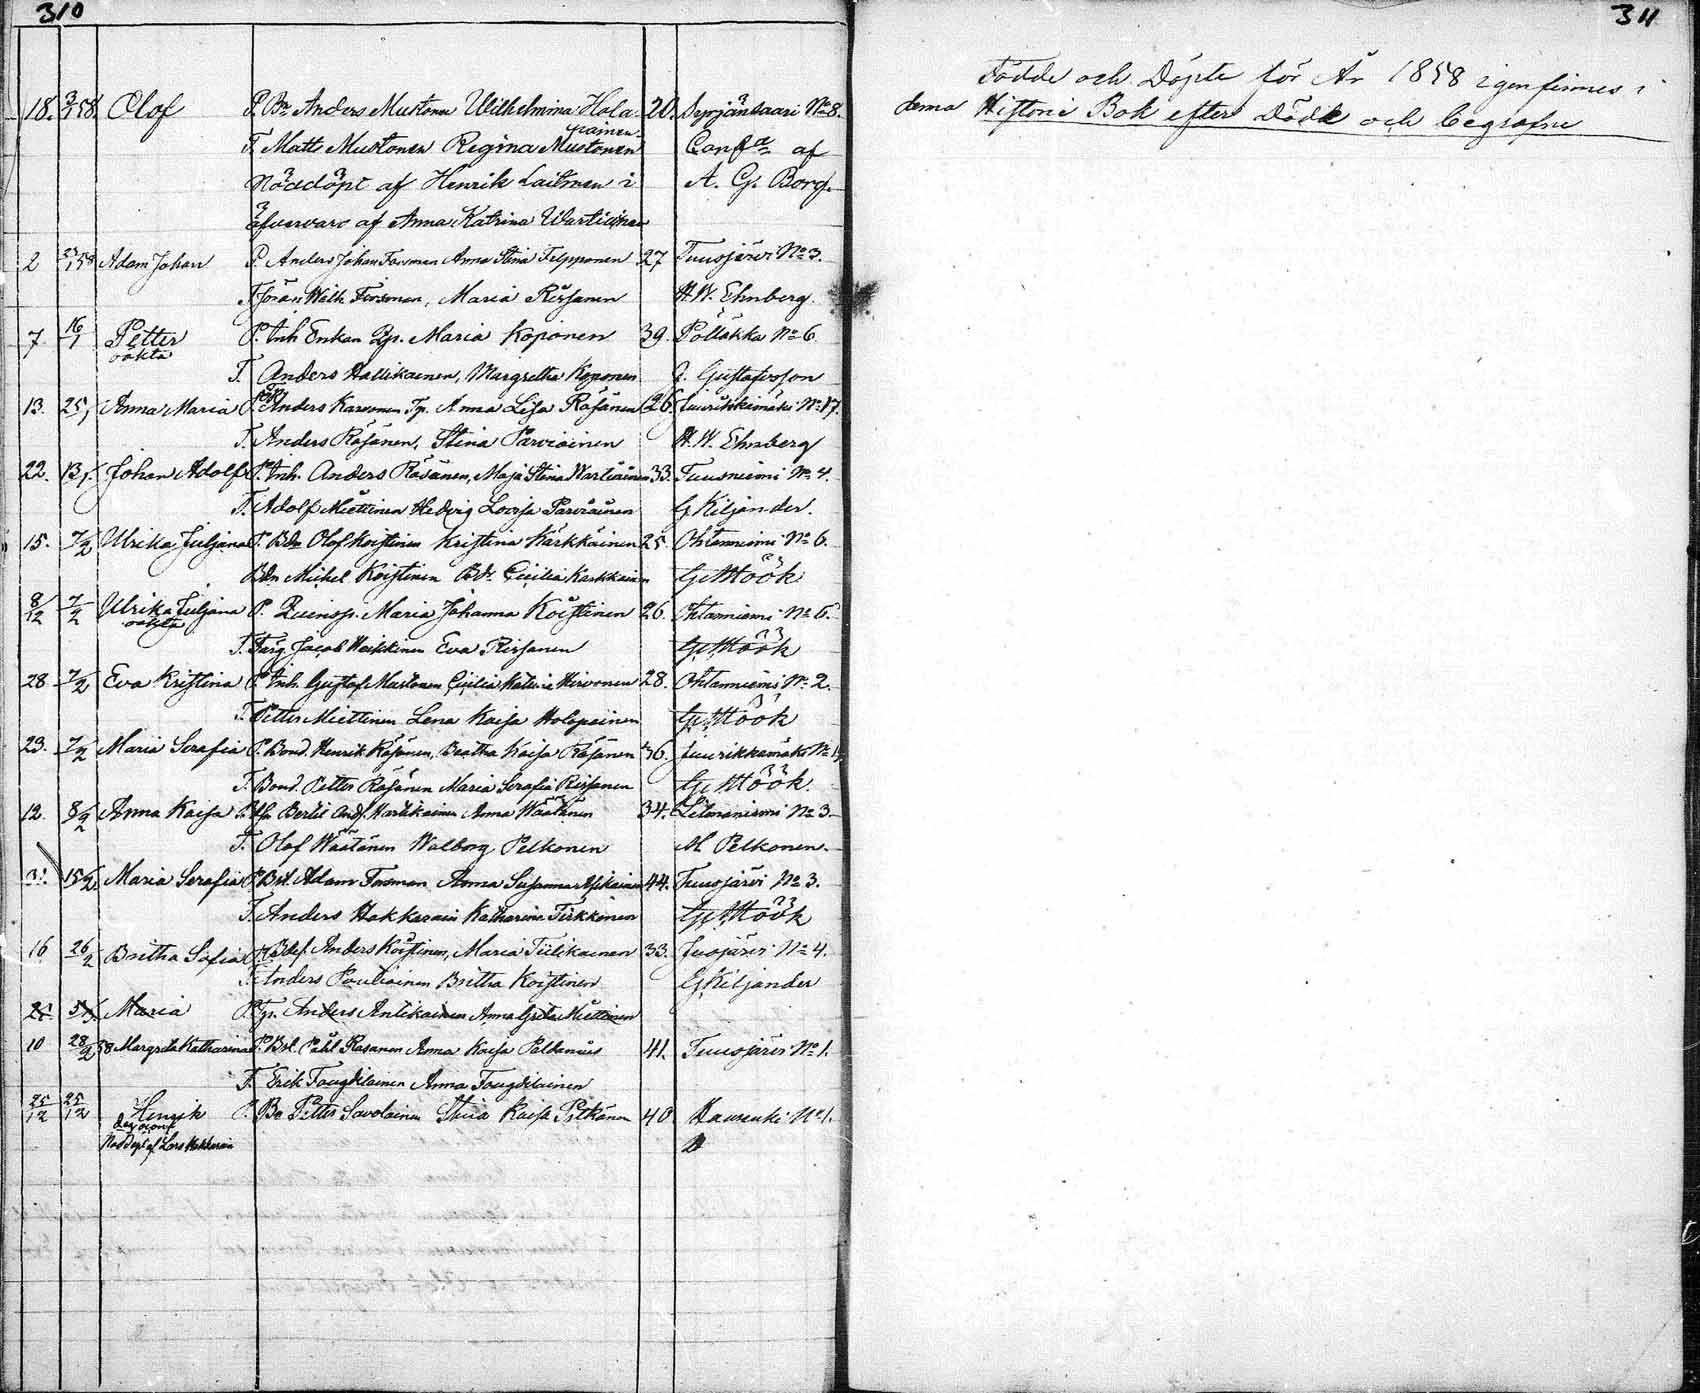 310
18. 3/1 58. Olof P. Bn Anders Mustonen Wilhelmina Hola- 20. Syrjänsaari No 8.
painen.
T. Matts Mustonen Regina Mustonen Conf af
Nöddöpt af Henrik Laitinen i A. G. Borg.
öfvervaro af Anna Katrina Wartiainen
2 58 Adam Johan P. Anders Johan Anna Stina 27 Tuusjärvi No 3.
T. Göran Wilh. Maria Rissanen H. W. Ehnberg.
7. 16/1 Petter P. Inh Enkan Maria Koponen 39. Pölläkkä No 6
oäkta
T. Anders Hallikainen, Margretha Koponen G. Gustafsson
13. 25/1 Anna Maria P. Anders Karvonen Tp. Anna Lisa Räsänen 26. Juurikkamäki No 17.
T. Anders Räsänen, Stina Parviainen H. W. Ehnberg
22. 13/1. Johan Adolf P. Inh. Anders Räsänen, Maja Stina Wartiainen 33. Tuusniemi No 4.
T. Adolf Miettinen Hedvig Lovisa Parviainen G. Kiljander.
15. 7/2 Ulrika Juljana P. Bdn Olof Koistinen Kristina Kärkkäinen 25. Ohtaniemi No 6.
Bdn Michel Koistinen Bd. Cicilia Karkkainen G. M Höök
8/12 7/2 Ulrika Juljana P. Maria Johanna Koistinen 26. Ohtaniemi No 6.
oäkta
T. Jacob Heikkinen Eva Rissanen G. M Höök
28 7/2 Eva Kristina P. Inh. Gustaf Mustonen Cicilia Hirvonen 28. Ohtaniemi No 2.
T. Petter Miettinen Lena Kaisa Holopainen G. M Höök
23. 7/2 Maria Serafia P. Bond. Henrik Räsänen, Beatha Kaisa Räsänen 36. Juurikkamäki No
T. Bond. Petter Räsänen Maria Serafia Rissanen G. M Höök.
12. 8/2 Anna Kaisa P. Bertil And. Anna Wäätänen 34. Litmaniemi No 3.
T. Olof Wäätänen Walborg Pelkonen M. Pelkonen.
31. 15/2 Maria Serafia P. Bd. Adam Anna Susanna Asikainen 44. Tuusjärvi No 3.
T. Anders Hakkarain Katharina Tirkkonen G. M Höök
16 26/2 Britha Sofia P. Anders Koistinen, Maria Tiilikainen 33. Tuusjärvi No 4.
T. Anders Pauliainen Britha Koistinen G. Kiljander
5/3. Maria P. Tp. Anders Antikainen Anna Greta Miettinen
10 28/2 58 Margreta Katharina P. Bd. Påhl Rasanen Anna Kaisa Paldanius 41. Tuusjärvi No 1.
T. Erik Anna
25/12 25/12 Henrik P. Bo Petter Savolainen Stina Kaisa Pitkänen 40. No 1.
Nöddöpt af Lars Hakkarain
311
Födde och Döpte för År 1858 igenfinnes i
dema Historie Bok efter Döde och begrafne